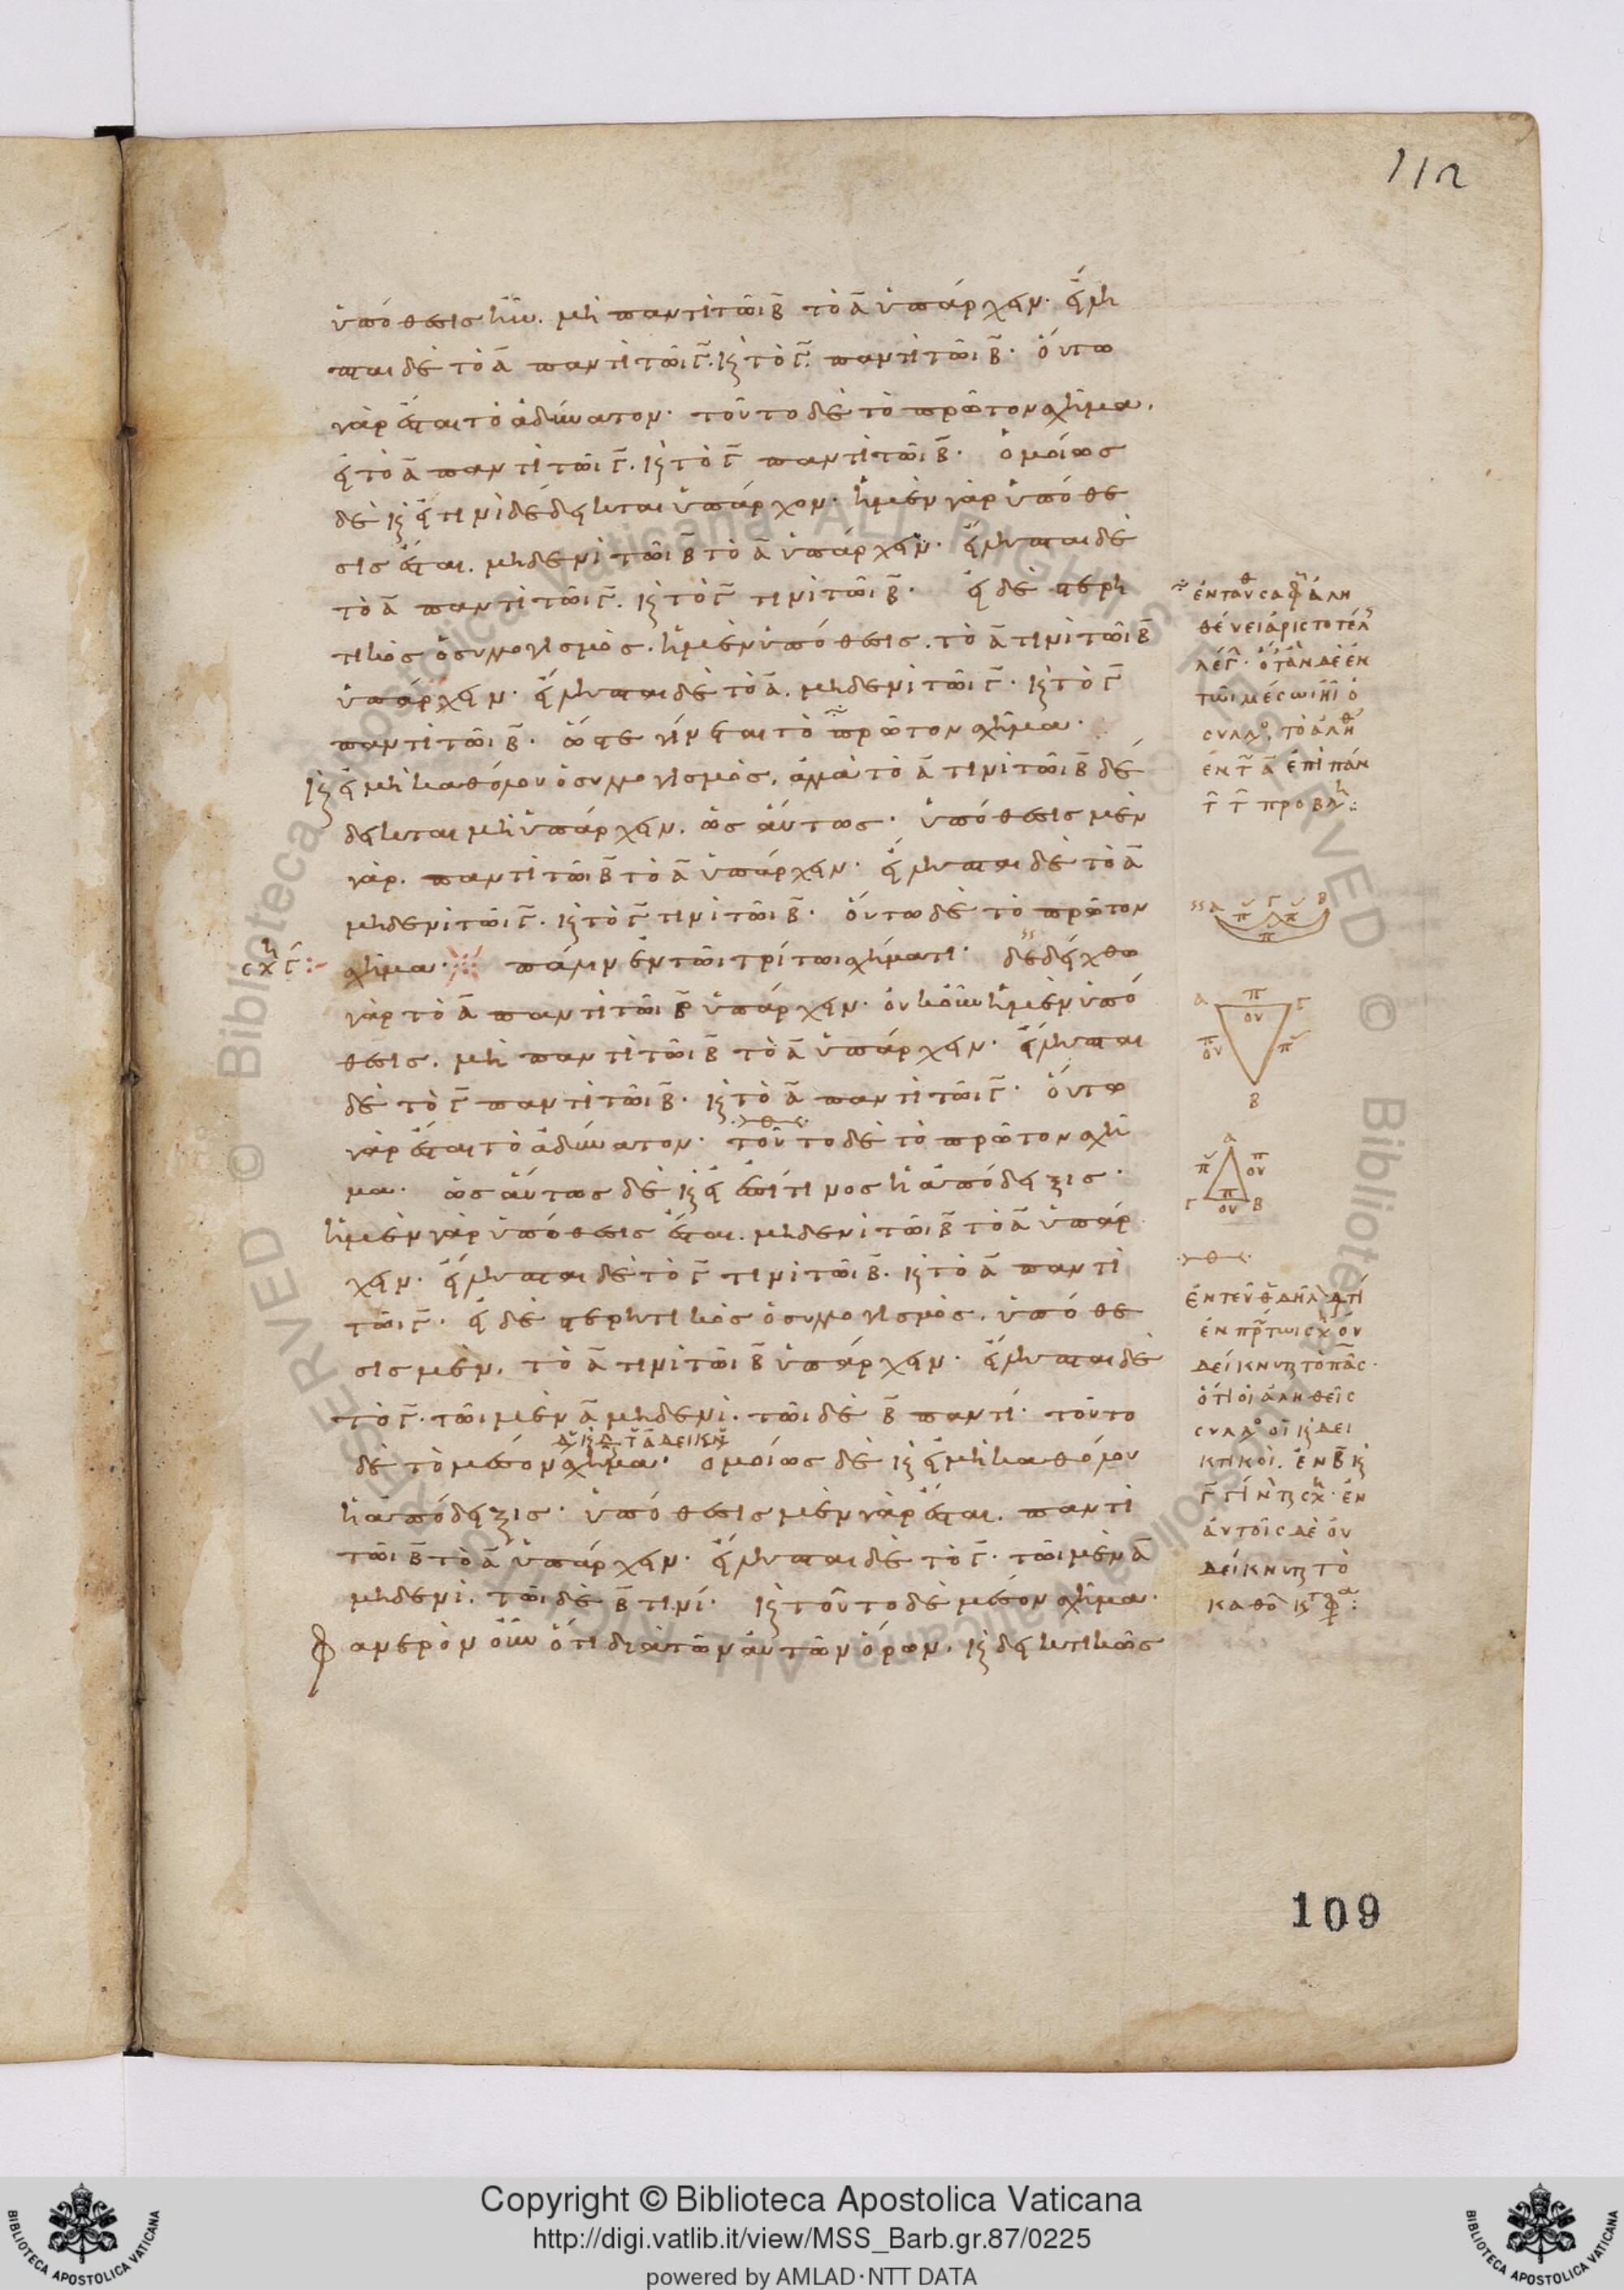 112
ὑπόθεσις ἦν. μὴ παντὶ τῶι Β̄ τὸ Ᾱ ὑπάρχειν· εἴλη
πται δὲ τὸ Ᾱ παντὶ τῶι Γ̄. καὶ τὸ Γ̄. παντὶ τῶι Β̄· οὕτω
γὰρ ἔσται τὸ ἀδύνατον· τοῦτο δὲ τὸ πρῶτον σχῆμα.
εἰ τὸ Ᾱ παντὶ τῶι Γ̄. καὶ τὸ Γ̄ παντὶ τῶι Β̄· ὁμοίως
δὲ καὶ εἰ τινὶ δέδεικται ὑπάρχον· ἡ μὲν γὰρ ὑπόθε
σις ἔσται. μηδενὶ τῶι Β̄ τὸ Ᾱ ὑπάρχειν· εἴληπται δὲ
τὸ Ᾱ παντὶ τῶι Γ̄. καὶ τὸ Γ̄ τινὶ τῶι Β̄· εἰ δὲ στερη
τικὸς ὁ συλλογισμὸς. ἡ μὲν ὑπόθεσις. τὸ Ᾱ τινὶ τῶι Β̄
ὑπάρχειν· εἴληπται δὲ τὸ Ᾱ. μηδενὶ τῶι Γ̄· καὶ τὸ Γ̄
παντὶ τῶι Β̄· ὥστε γίνεται τὸ πρῶτον σχῆμα·
καὶ εἰ μὴ καθόλου ὁ συλλογισμὸς, ἀλλὰ τὸ Ᾱ τινὶ τῶι Β̄ δέ
δεικται μὴ ὑπάρχειν. ὡς αὕτως· ὑπόθεσις μὲν
γὰρ. παντὶ τῶι Β̄ τὸ Ᾱ ὑπάρχειν· εἴληπται δὲ τὸ Ᾱ
μηδενὶ τῶι Γ̄. καὶ τὸ Γ̄ τινὶ τῶι Β̄· οὕτω δὲ τὸ πρῶτον
σχῆμα· πάλιν ἐν τῶι τρίτωι σχήματι· δεδείχθω
γὰρ τὸ Ᾱ παντὶ τῶι Β̄ ὑπάρχειν· οὐκοῦν ἡ μὲν ὑπό
θεσις. μὴ παντὶ τῶι Β̄ τὸ Ᾱ ὑπάρχειν· εἴληπται
δὲ τὸ Γ̄ παντὶ τῶι Β̄· καὶ τὸ Ᾱ παντὶ τῶι Γ̄· οὕτω
γὰρ ἔσται τὸ ἀδύνατον· τοῦτο δὲ τὸ πρῶτον σχῆ
μα· ὡς αὕτως δὲ καὶ εἰ ἐπί τινος ἡ ἀπόδειξις·
ἡ μὲν γὰρ ὑπόθεσις ἔσται. μηδενὶ τῶι Β̄ τὸ Ᾱ ὑπάρ
χειν· εἴληπται δὲ τὸ Γ̄ τινὶ τῶι Β̄. καὶ τὸ Ᾱ παντὶ
τῶι Γ̄· εἰ δὲ στερητικὸς ὁ συλλογισμὸς. ὑπόθε
σις μὲν. τὸ Ᾱ τινὶ τῶι Β̄ ὑπάρχειν· εἴληπται δὲ
τὸ Γ̄. τῶι μὲν Ᾱ μηδενὶ. τῶι δὲ Β̄ παντί· τοῦτο
δὲ τὸ μέσον σχῆμα· ὁμοίως δὲ καὶ εἰ μὴ καθόλου
ἡ ἀπόδειξις· ὑπόθεσις μὲν γὰρ ἔσται. παντὶ
τῶι Β̄ τὸ Ᾱ ὑπάρχειν· εἴληπται δὲ τὸ Γ̄. τῶι μὲν Ᾱ
μηδενὶ. τῶι δὲ Β̄ τινί· καὶ τοῦτο δὲ μέσον σχῆμα·
Φανερὸν οὖν ὅτι διὰ τῶν αὐτῶν ὅρων. καὶ δεικτικῶς
σχη Γ̄
ἐνταῦθα σαφ ἀλη
θεύει ἀριστοτέλ
λέγ· ὅταν δὲ ἐν
τῶι μέσωι ἦι ὁ
συλλο, τὸ ἀληθ
ἐν τ Ᾱ ἐπὶ πάν
τ τ προβλη:
Α Γ Β
π π
π
Α π Γ
ου
π
ου π
Β
Α
π π
ου
Γ π Β
ου
ἐντεῦθ δῆλ ὅτι
ἐν πρώτωι σχ οὐ
δείκνυται τὸ πᾶς·
ὅτι οἱ ἀληθεῖς
συλλο οἱ καὶ δει
κτικοὶ. ἐν Β̄ καὶ
Γ̄ γίνται σχη· ἐν
αὐτοῖς δὲ οὐ
δείκνυται τὸ
καθό κατφα:
109
Copyright © Biblioteca Apostolica Vaticana
http://digi.vatlib.it/view/MSS_Barb.gr.87/0225
powered by AMLAD·NTT DATA
BIBLIOTECA APOSTOLICA VATICANA
BIBLIOTECA APOSTOLICA VATICANA